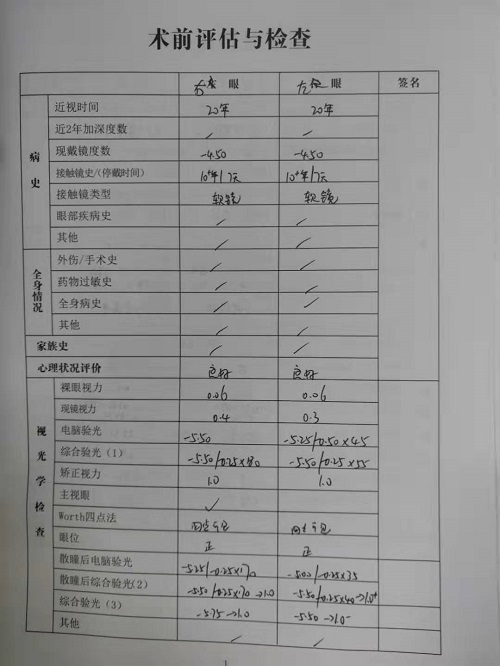 术前评估与检查
右 眼 左 眼 签名
病史
近视时间 20年 20年
近2年加深度数 / /
现戴镜度数 -4.50 -4.50
接触镜史/(停戴时间) 10+年/7天 10+年/7天
接触镜类型 软镜 软镜
眼部疾病史 / /
其他 / /
全身情况
外伤/手术史 / /
药物过敏史 / /
全身病史 / /
其他 / /
家族史 / /
心理状况评价 良好 良好
视光学检查
裸眼视力 0.06 0.06
现镜视力 0.4 0.3
电脑验光 -5.50 -5.25/-0.50×45
综合验光(1) -5.50/-0.25×80 -5.50/-0.25×55
矫正视力 1.0 1.0
主视眼 ✓
Worth四点法
眼位 正 正
散瞳后电脑验光 -5.25/-0.25×170 -5.00/-0.25×35
散瞳后综合验光(2) -5.50/-0.25×170→1.0 -5.50/-0.25×40→1.0+
综合验光(3) -5.75→1.0 -5.50→1.0-
其他 / /
1